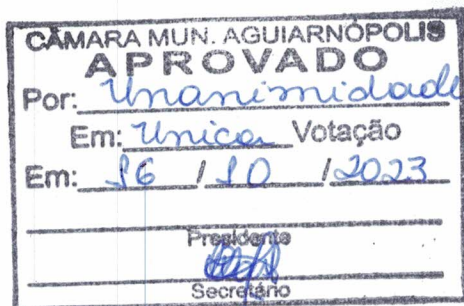 CÂMARA MUN. AGUIARNÓPOLIS
APROVADO
Por: Unanimidade
Em: Unica Votação
Em: 16 / 10 / 2023
Presidente
Secretário